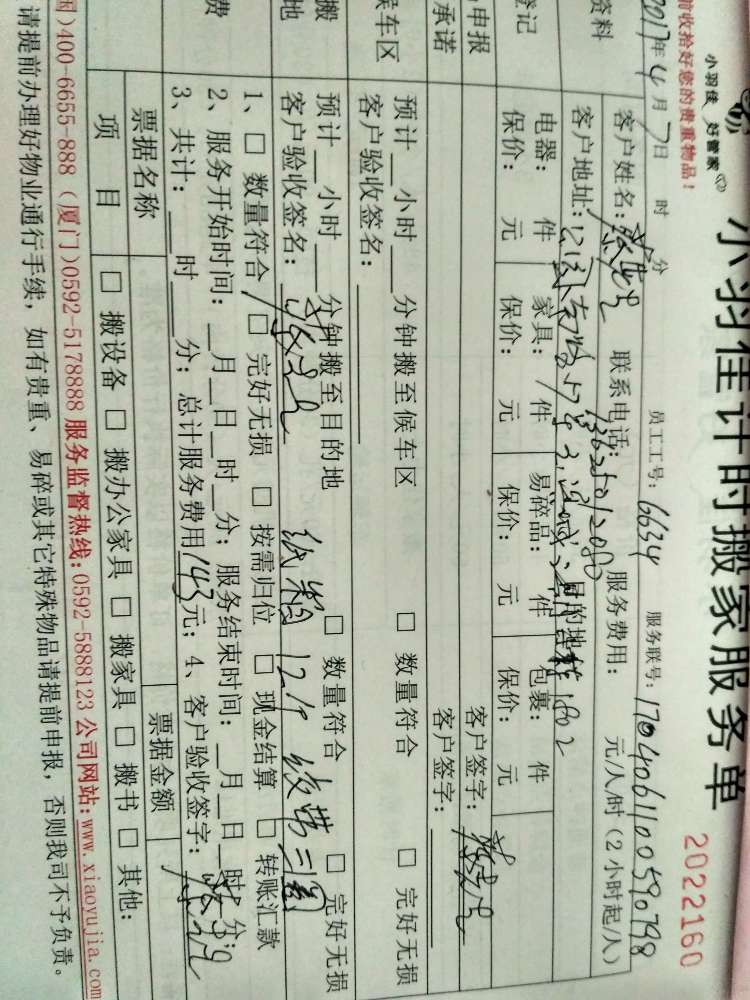 小羽佳 好管家
小羽佳计时搬家服务单
2022160
前收拾好您的贵重物品!
2017年4月7日 时 分
员工工号: 6634
服务联号: 1704061100590798
资料
客户姓名:
联系电话:
服务费用: 元/人/时(2小时起/人)
客户地址:
目的地: 1802
登记
电器: 件
家具: 件
易碎品: 件
包裹: 件
保价: 元
保价: 元
保价: 元
保价: 元
申报
承诺
客户签字:
客户签字:
候车区
预计__小时__分钟搬至候车区 □ 数量符合 □ 完好无损
客户验收签名:
搬
地
预计__小时__分钟搬至目的地 □ 数量符合 □ 完好无损
客户验收签名:
纸箱12个 胶带三圈
费
1、□ 数量符合 □ 完好无损 □ 按需归位 □ 现金结算 □ 转账汇款
2、服务开始时间:__月__日__时__分; 服务结束时间:__月__日__时__分;
3、共计:__时__分; 总计服务费用143元; 4、客户验收签字:
票据名称
票据金额
项 目
□ 搬设备 □ 搬办公家具 □ 搬家具 □ 搬书 □ 其他:
国)400-6655-888 (厦门)0592-5178888 服务监督热线:0592-5888123 公司网站:www.xiaoyujia.com
请提前办理好物业通行手续,如有贵重、易碎或其它特殊物品请提前申报,否则我司不予负责。